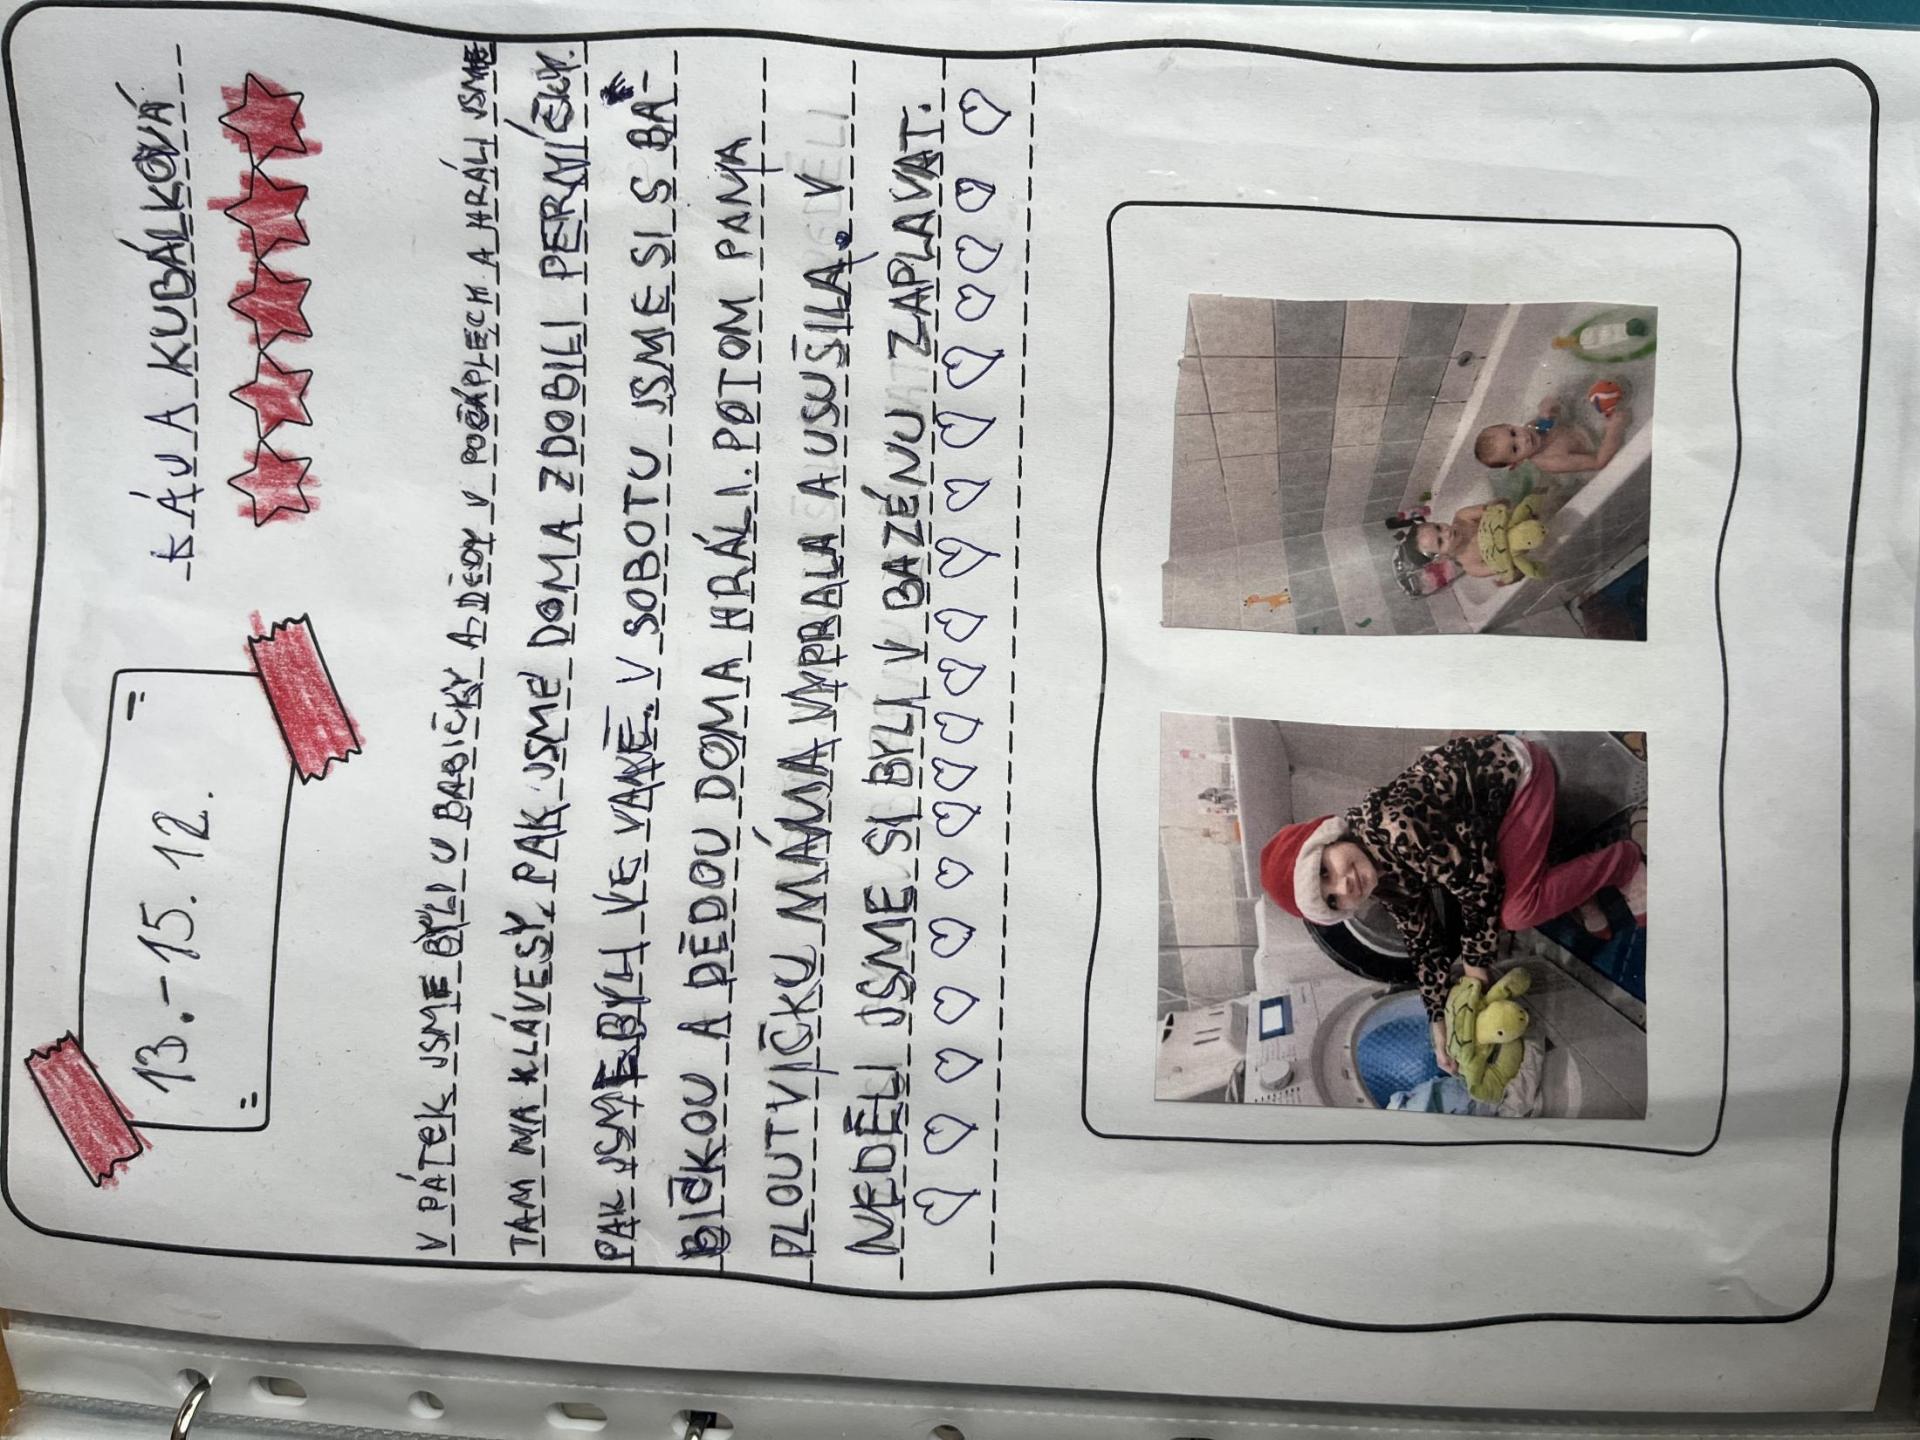 13.-15.12.
KÁJA KUBÁLKOVÁ
V PÁTEK JSME BYLI U BABIČKY A DĚDY V POČÁPLECH A HRÁLI JSME
TAM NA KLÁVESY. PAK JSME DOMA ZDOBILI PERNÍČKY.
PAK JSME BYLI VE VANĚ. V SOBOTU JSME SI S BA-
BIČKOU A DĚDOU DOMA HRÁLI. POTOM PANYA
PLOUTVIČKU MÁMA VYPRALA A USUŠILA. V
NEDĚLI JSME SI BYLI V BAZÉNU ZAPLAVAT.